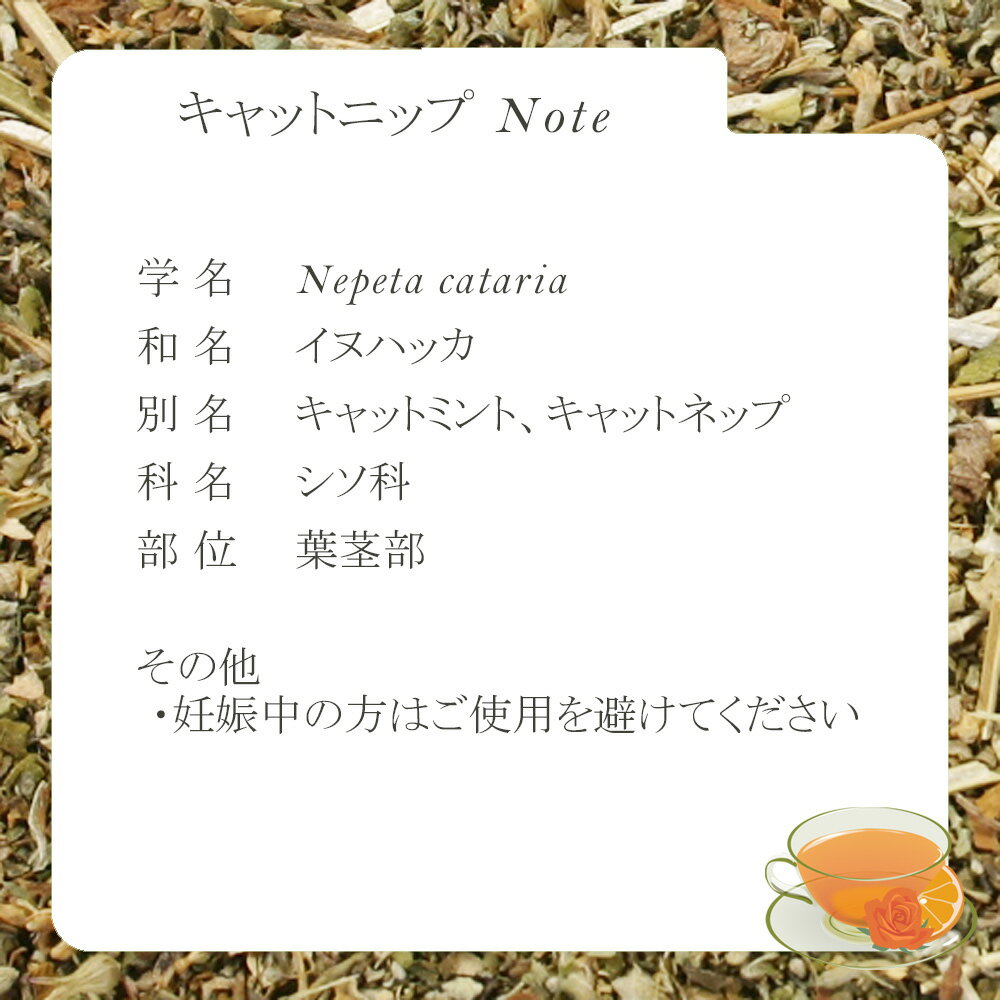 キャットニップ Note
学名 Nepeta cataria
和名 イヌハッカ
別名 キャットミント、キャットネップ
科名 シソ科
部位 葉茎部
その他
・妊娠中の方はご使用を避けてください